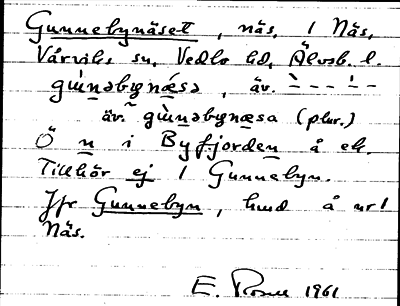 Gunnebynäset, näs, 1 Näs,
Vårviks sn, Vedbo hd, Älvsb. l.
gu̇̀nəbynǽsə, äv. – – – –
äv. gu̇̀nəbynæsa (plur.)
Ö n i Byfjorden å ek.
Tillhör ej 1 Gunnebyn.
Jfr Gunnebyn, hmd å nr 1
Näs.
E. 1961